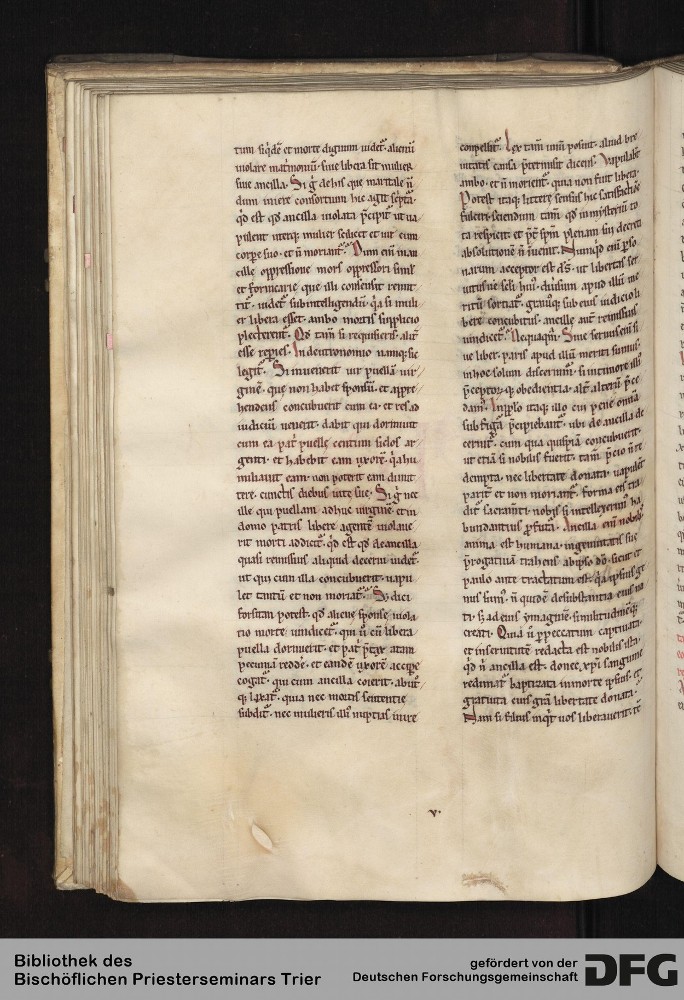 tum siqde et morte dignum uidet alienu
uiolare matrimoniu siue libera sit mulier
siue ancilla. Si g de his que maritale n
dum iniere consortium hic agit scripta
qd est qd ancilla uiolata precipit ut ua
pulent uterq; mulier scilicet et uir cum
corpe suo et n moriant. Dum eni man
cille oppressione mors oppressori simul
et fornicarie que illi consensit remit
tit uidet subintelligendu qa si muli
er libera esset ambo mortis supplicio
plecterent. Qd tam si requisieris alit
esse repies. In deutronomio namq; sic
legit. Si inuenerit uir puella uir
gine que non habet sponsu et appre
hendens concubuerit cum ea et res ad
iudiciu uenerit dabit qui dormiuit
cum ea patri puelle centum siclos ar
genti et habebit eam uxore qa hu
miliauit eam non poterit eam dimit
tere cunctis diebus uite sue. Si g nec
ille qui puellam adhuc uirgine et in
domo patris libere agente uiolaue
rit morti addicit qd est qd de ancilla
quasi remissius aliquid decerni uidet
ut qui cum illa concubuerit uapu
let tantu et non moriat. Sz dici
forsitan potest qd alicui sponse uiola
tio morte uindicet qui u cu libera
puella dormierit et pat ptxt atam
pecunia redde et eande uxore accipe
cogat qui cum ancilla coierit abut
q; laxat quia nec mortis sententie
subdit nec mulieris illi nuptias inire
conpellit. Lex tam unu posuit aliud bre
uitatis causa ptermisit dicens. Vapulabt
ambo et n morient quia non fuit libera.
Potest itaq; littere sensus hic satisfactioe
fulciri sciendum tam qd in mysteriu to
ta respicit et pt spm plenam sui decreti
absolutione n inuenit. Nunqd eni pso
narum acceptor est ds ut libertas ser
uitusue seli hui diuisum apud illu me
ritu sortiat grauiusq; sub eius iudicio li
bere concubitus ancille aut remissius
uindicet. Nequaqm. Siue serui seni si
ue liber paris apud illu meriti sumus
in hoc solum discernim si in timore illi
pceptorq; obedientia alt alteru pce
dam. In ipso itaq; illo cui pene omia
sub figa pcipiebant ubi de ancilla de
cernit cum qua quispia concubuerit
ut etia si nobilis fuerit tam pcio n re
dempta nec libertate donata uapulet
parit et non moriant forma eis tra
dit sacramti nobis si intellexerim ha
bundantius pfuta. Ancilla eni nobilis
anima est humana ingenuitatis sue
progatiua trahens ab ipso do sicut et
paulo ante tractatum est qa ipsius ge
nus sum n quide de substantia eius na
ti sz ad eius ymagine similitudineq;
creati. Quia u p peccatum captiuata
et in seruitute redacta est nobilis illa
qd n ancilla est donec xpi sanguine
redimat baptizata in morte ipsius et
gratuita eius gra libertate donata.
Nam si filius inqt uos liberauerit te
v.
Bibliothek des
Bischöflichen Priesterseminars Trier
gefördert von der
Deutschen Forschungsgemeinschaft
DFG